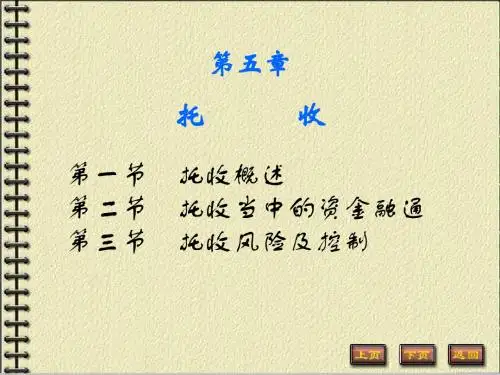 第五章
托 收
第一节 托收概述
第二节 托收当中的资金融通
第三节 托收风险及控制
上页 下页 返回